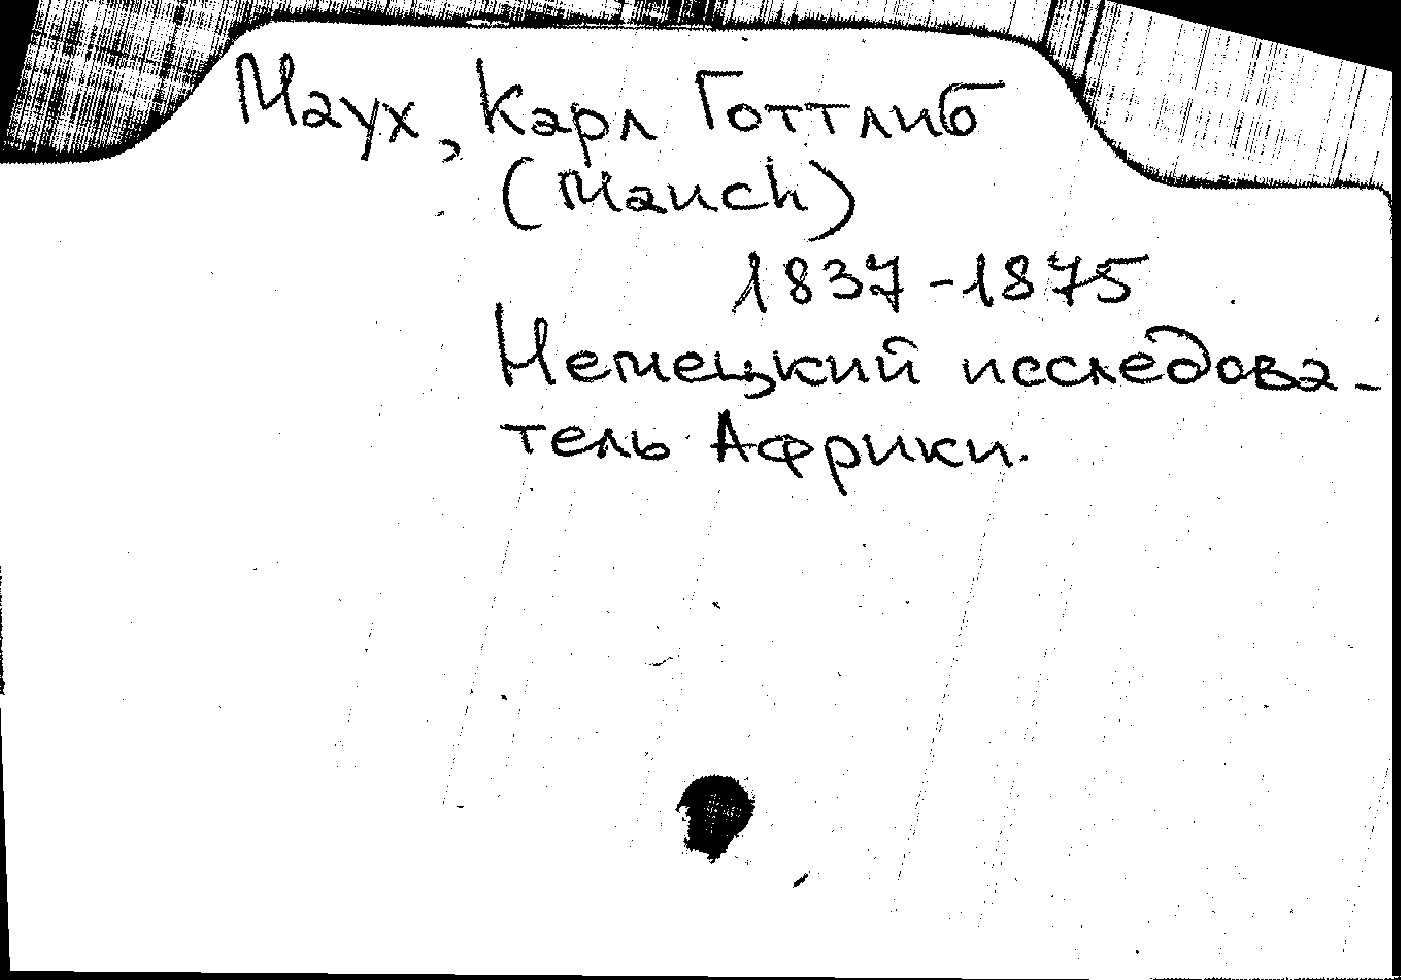 Маух, Карл Готтлиб
(Mauch)
1837-1875
Немецкий исследова-
тель Африки.